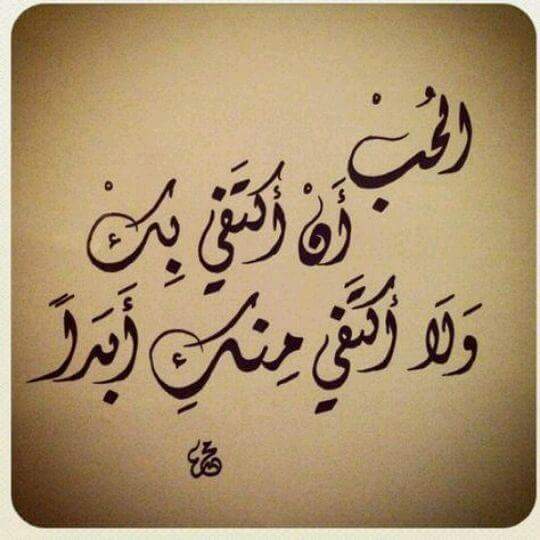 الحُبْ
أَنْ أكتَفي بِكْ
وَلَا أكتَفي مِنكِ أَبَدَاً